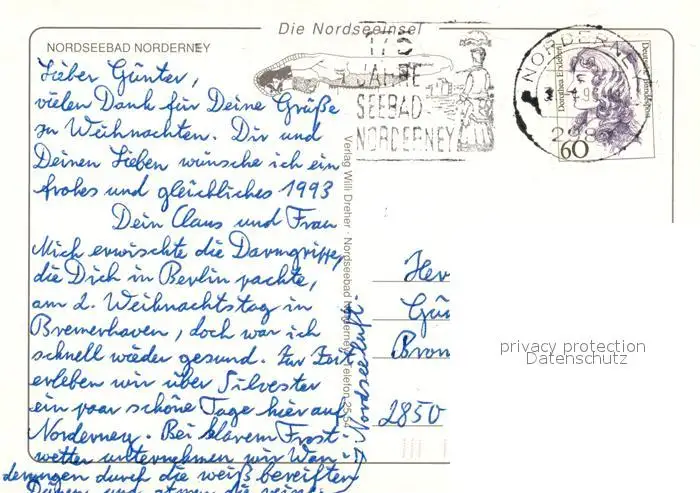 Die Nordseeinsel
NORDSEEBAD NORDERNEY
Lieber Günter,
vielen Dank für Deine Grüße
zu Weihnachten. Dir und
Deinen Lieben wünsche ich ein
frohes und glückliches 1993
Dein Claus und Frau
Mich erwischte die Darmgrippe,
die Dich in Berlin packte,
am 2. Weihnachtstag in
Bremerhaven, doch war ich
schnell wieder gesund. Zur Zeit
erleben wir über Silvester
ein paar schöne Tage hier auf
Norderney. Bei klarem Frost-
wetter unternehmen wir Wan-
derungen durch die weiß bereiften
Dünen und atmen die reine
Nordseeluft.
Verlag Willi Dreher · Nordseebad Norderney · Telefon
175
JAHRE
SEEBAD
NORDERNEY
NORDERNEY
2982
Dorothea Erxleben
Deutsche Bundespost
60
Her
Gün
Brem
2850
privacy protection
Datenschutz